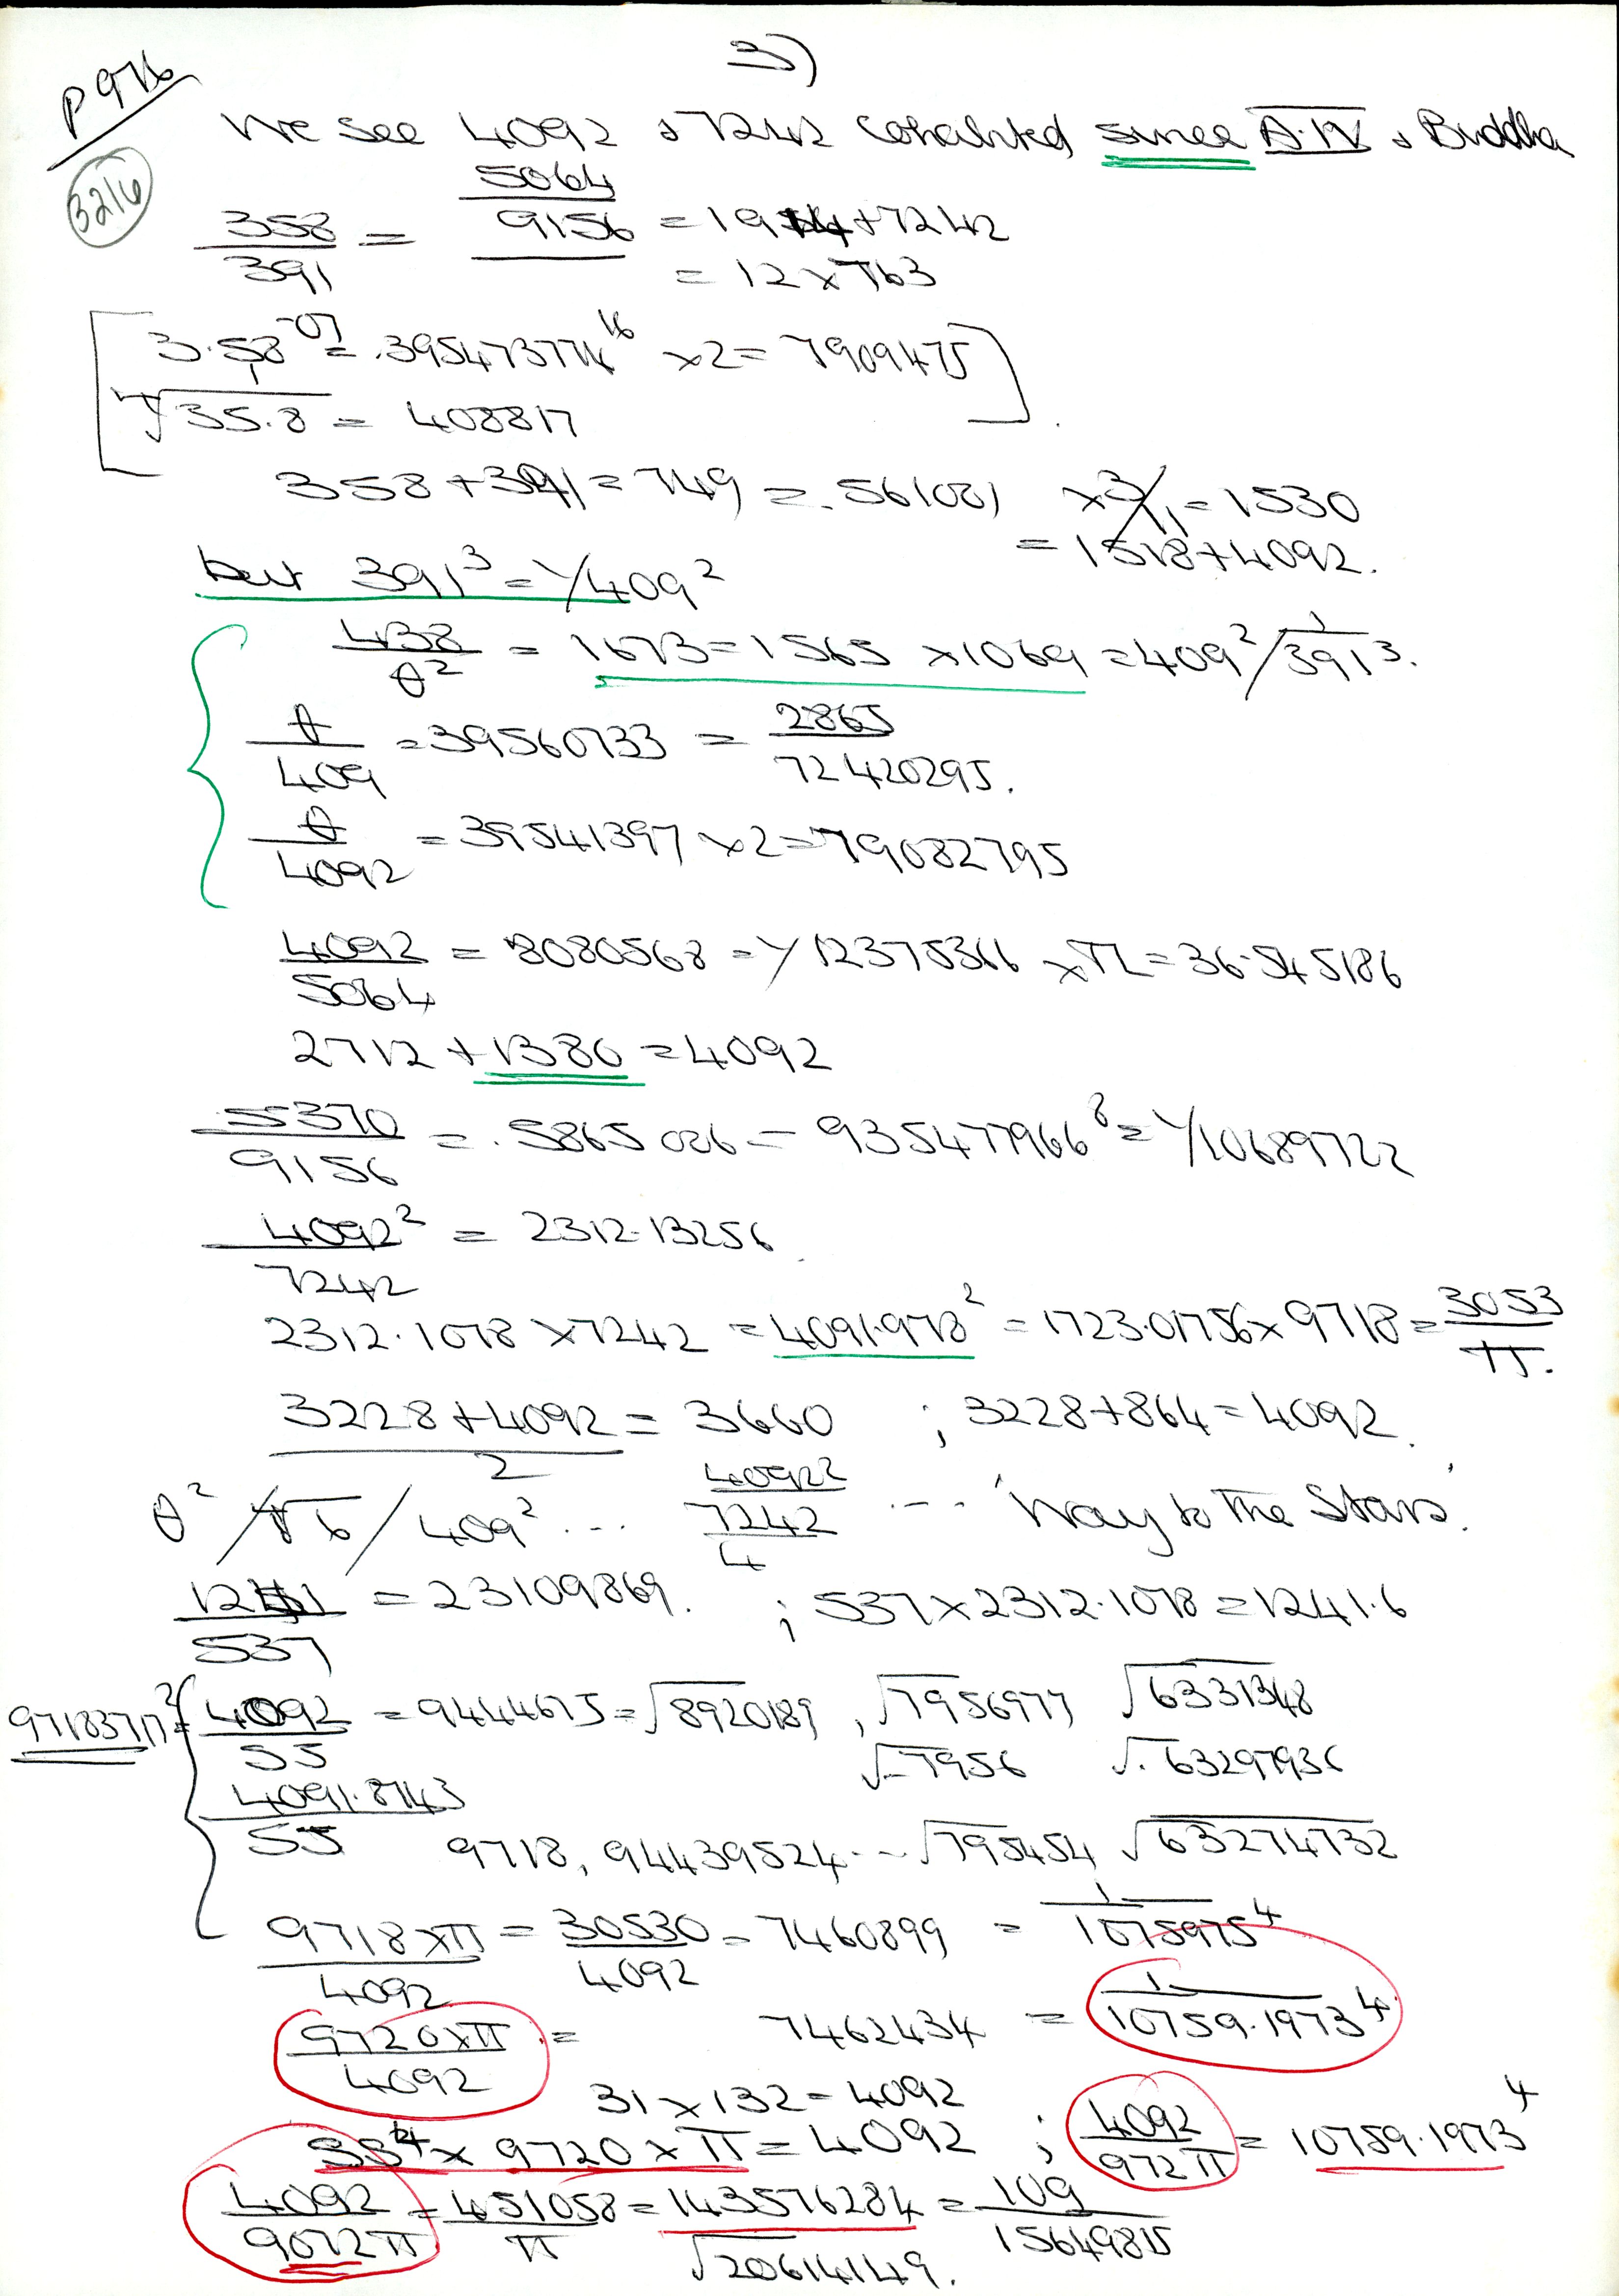 3)
P 976
3216
We see 4092 & 7242 since A.N & Buddha
358/391 = 5064/9156 = 1914 + 7242
= 12 x 763
3.58^-07 = .395473774^16 x2 = 7909475
√35.8 = 408817
358 + 391 = 749 = .561001 x 3/11 = 1530
= 1518 + 4092.
but 391^3 = 1/409^2
438/θ^2 = 1673 = 1565 x 1069 = 409^2/391^3.
θ/409 = 39560733 = 2865/72420295.
θ/4092 = 39541397 x2 = 79082795
4092/5064 = 8080568 = 1/12375366 x π = 36.545186
2712 + 1380 = 4092
5370/9156 = .5865006 = 935477966^8 = 1/10689722
4092^2/7242 = 2312.13256
2312.1078 x 7242 = 4091.978^2 = 1723.01756 x 9718 = 3053/π.
3228 + 4092/2 = 3660 ; 3228 + 864 = 4092.
θ^2/√6/409^2 ... 4092^2/7242/4 ... 'Way to the Stars'.
1241/537 = 23109869. ; 537 x 2312.1078 = 1241.6
9718371^2 = 4092/SS = 9444675 = √8920189, √7956977 √6331348
√.7956 √.63297936
4091.8743/SS
9718, 94439524 ... √795454 √63274732
9718 x π/4092 = 30530/4092 = 7460899 = 1/1075975^4
9720 x π/4092 = 7462434 = 1/10759.1973^4
31 x 132 = 4092
SS^4 x 9720 x π = 4092 ; 4092/972π = 10759.1973^4
4092/9072π = 451058/π = 143576284 = 109/15649815
√206141149.